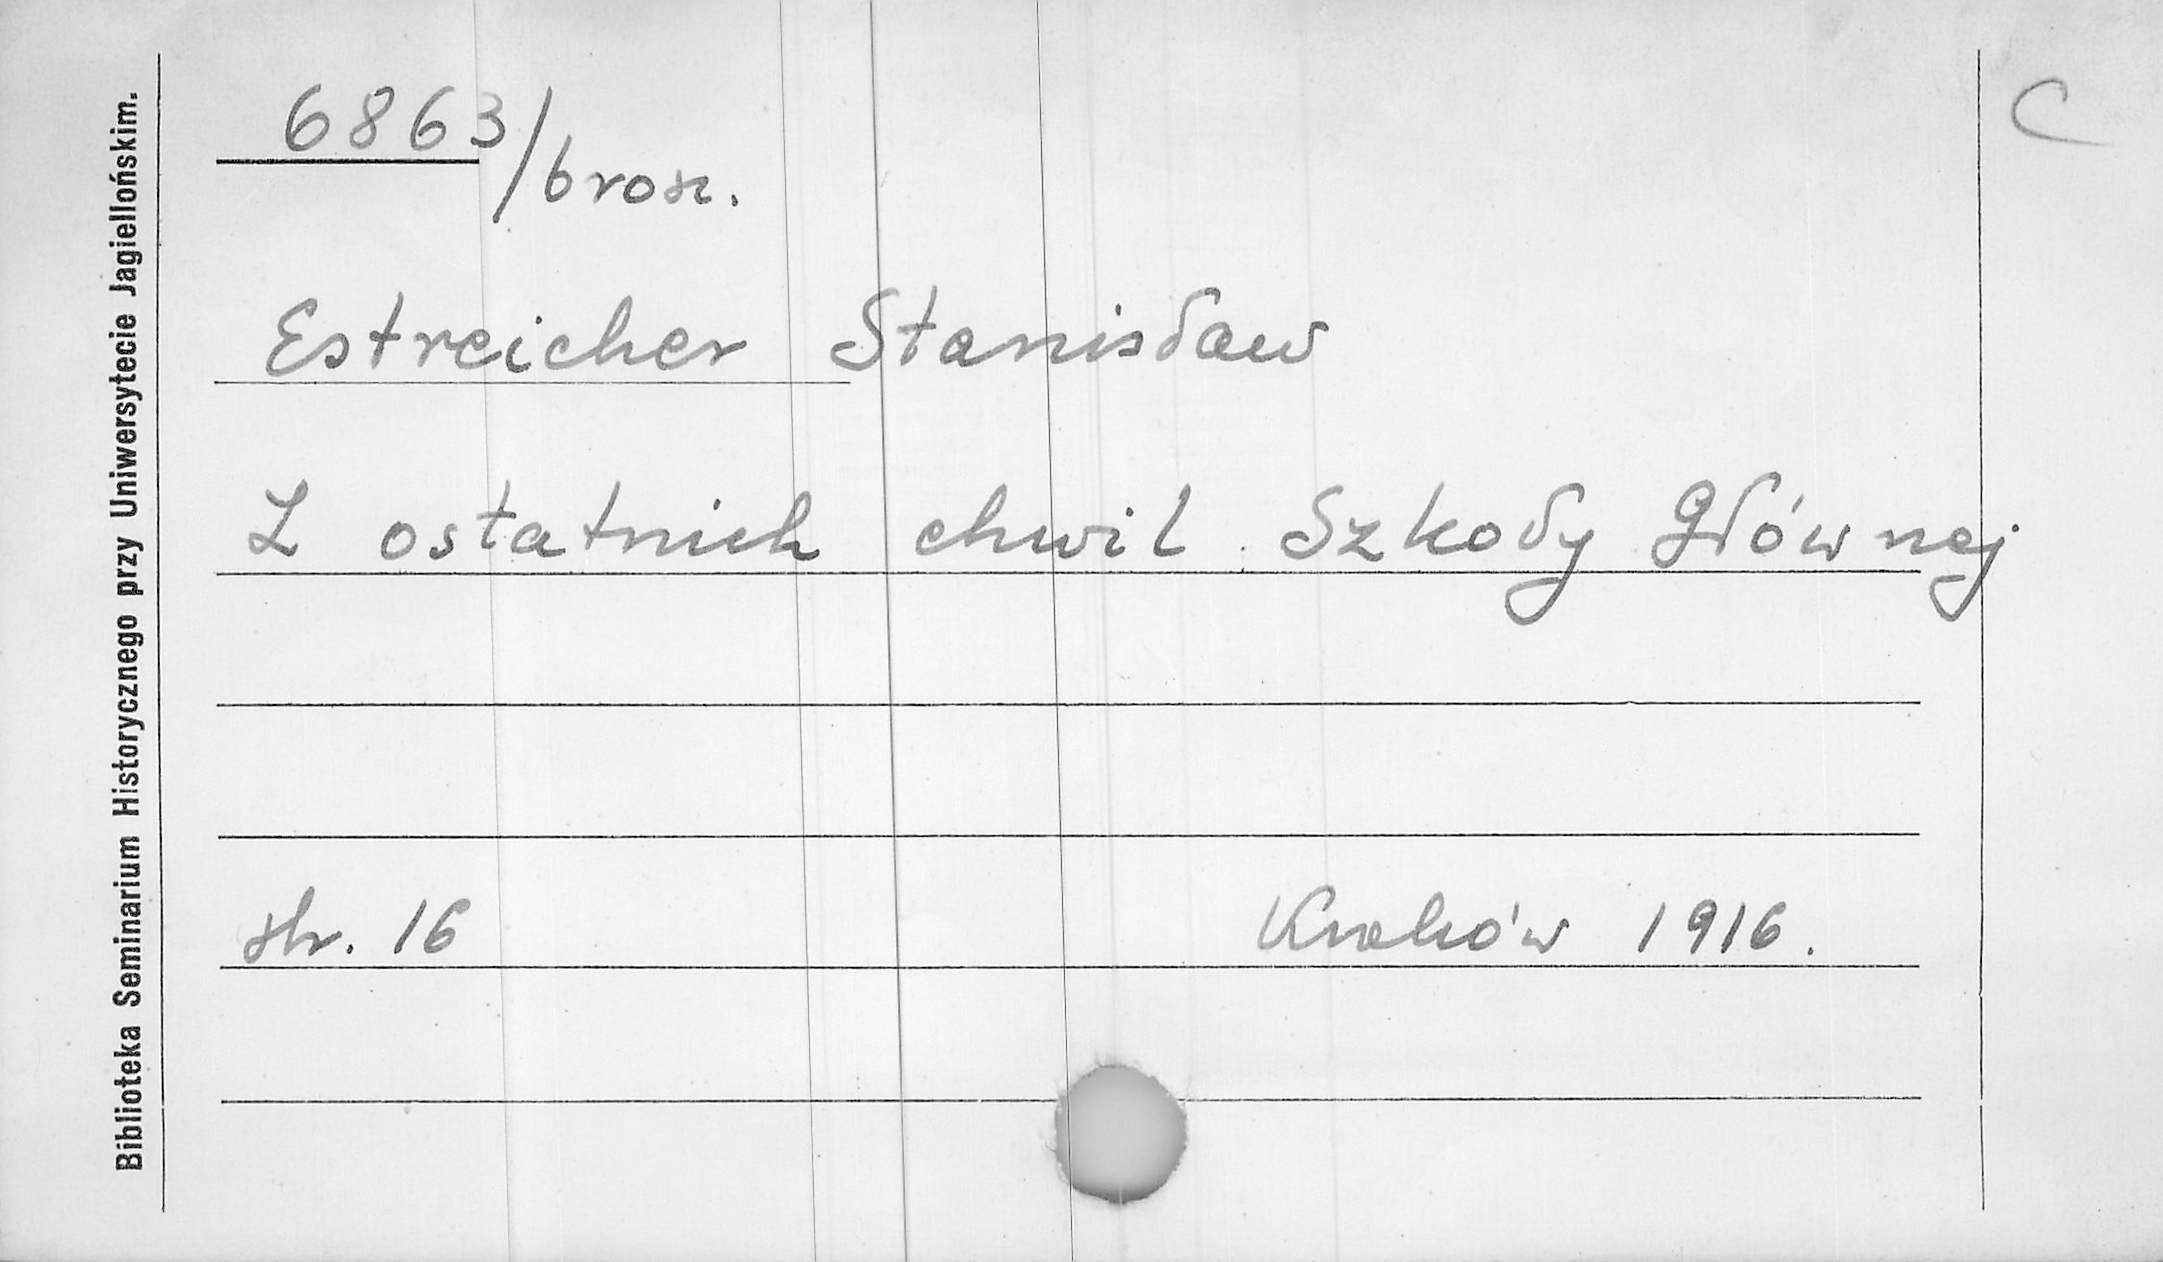 Biblioteka Seminarium Historycznego przy Uniwersytecie Jagiellońskim.
6863/brosz.
C
Estreicher Stanisław
Z ostatnich chwil Szkoły Głównej
str. 16 Kraków 1916.